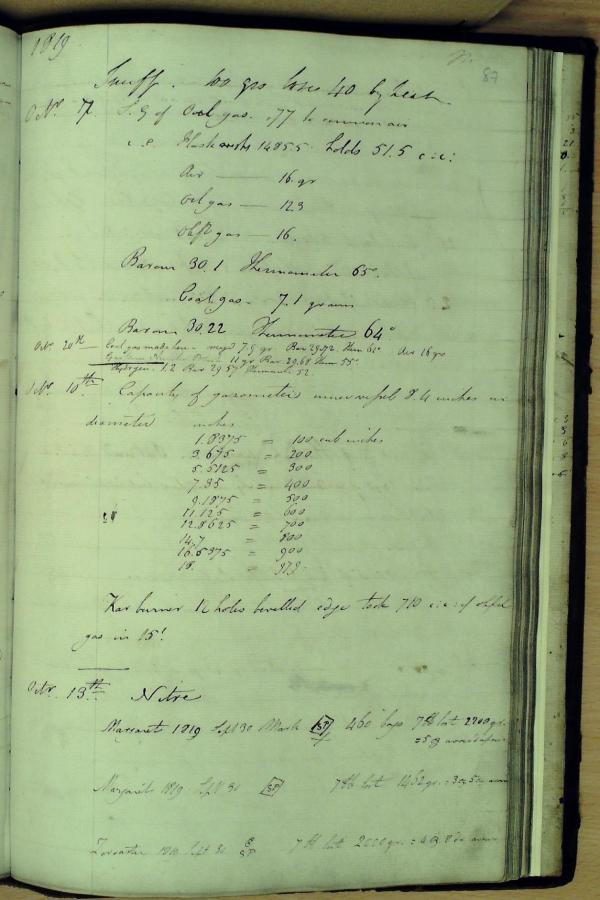 1819
87
Snuff. 100 grs loses 40 by heat
Octr. 7. S.G of Coal gas .77 to common air
i.e. Flask exhausted 1485.5 holds 51.5 c:i:
Air — 16. gr
Oil gas — 12.3
Olift gas — 16.
Barom 30.1 Thermometer 65°.
Coal gas. 7.1 grains
Barom 30.22 Thermometer 64°
Octr. 20th Coal gas made here weigd 7.9 gr. Bar 29.72. Ther 61° Air 16 grs
11 gr Bar 29.68 Ther 55°
Hydrogen. 1.2 Bar 29.57 Thermometer 52
Octr. 10th Capacity of gasometer inner vessel 8.4 inches in
diameter inches
1.8375 = 100 cub inches
3.675 = 200
5.5125 = 300
7.35 = 400
9.1875 = 500
11.125 = 600
12.8625 = 700
14.7 = 800
16.5375 = 900
18. = 979
burner 12 holes bevelled edge took 710 c:i: of olift
gas in 15'.
Octr. 13th. Nitre
Margaret 1819 Sept 30 Mark 460 bags 7 lb lost 2200 gr.
Margaret 1819 Sept 30 7 lb lost 1462 gr.
1819 Sept 30 7 lb lost 2000 gr.